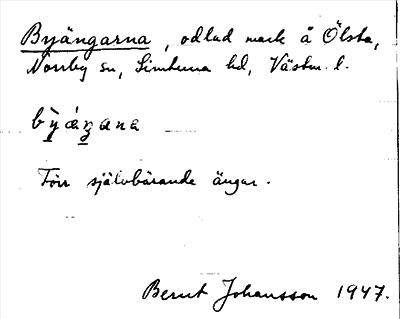 Byängarna, odlad mark å Ölsta,
Norrby sn, Simtuna hd, Västm. l.
Förr självbärande ängar.
Bernt Johansson 1947.